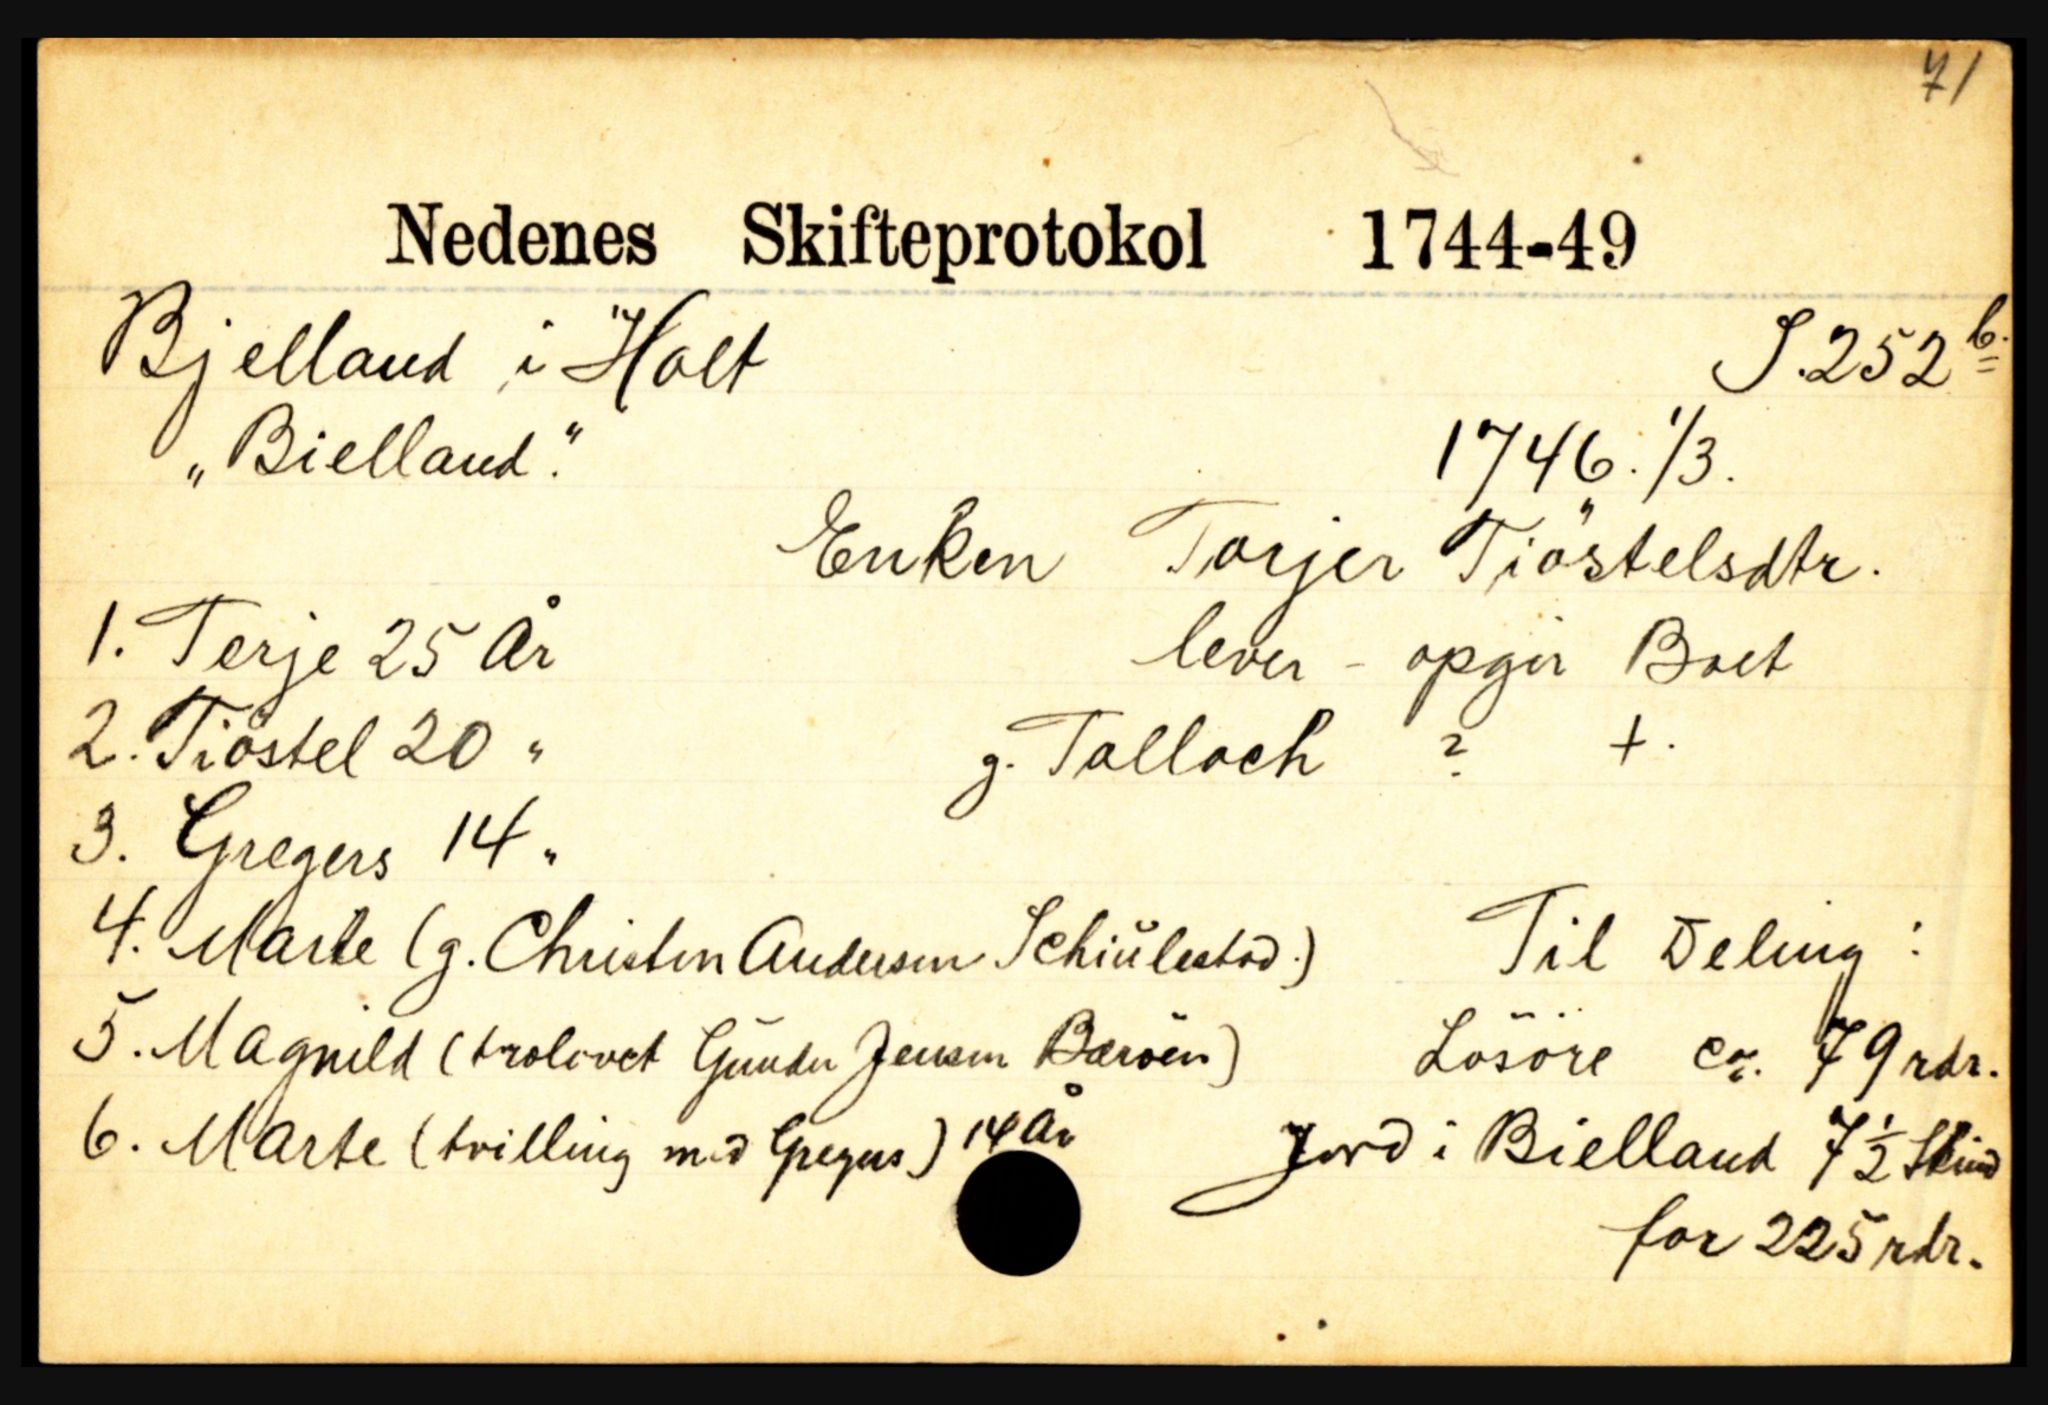 71
Nedenes Skifteprotokol 1744-49
Bjelland i Holt S. 252 b.
„Bielland“. 1746. 1/3.
Enken Torjer Tiöstelsdtr.
1. Terje 25 År lever - opgir Boet
2. Tiöstel 20 " g. Tolloch ? +.
3. Gregers 14 "
4. Marte (g. Christen Andersen Schiulestad.) Til Deling:
5. Magnild (trolovet Gunder Jensen Bæröen) Lösöre ca. 79 rdr.
6. Marte (tvilling med Gregers) 14 År Jord i Bielland 7 1/2 Skind
for 225 rdr.